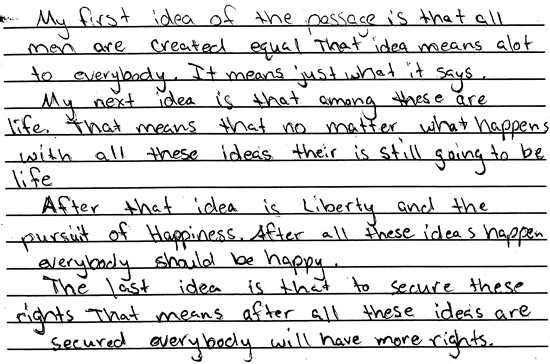 My first idea of the passage is that all
men are created equal That idea means alot
to everybody. It means just what it says.
My next idea is that among these are
life. That means that no matter what happens
with all these ideas their is still going to be
life
After that idea is Liberty and the
pursuit of Happiness. After all these ideas happen
everybody should be happy.
The last idea is that to secure these
rights That means after all these ideas are
secured everybody will have more rights.